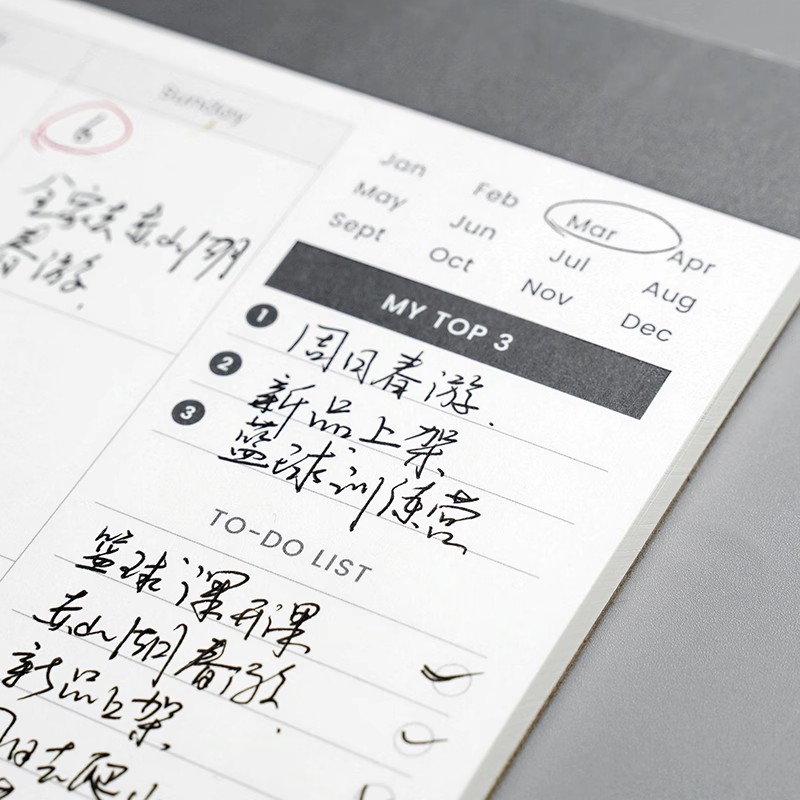 Sunday
6
全家去东山湖
春游.
Jan Feb Mar Apr
May Jun Jul Aug
Sept Oct Nov Dec
MY TOP 3
1 周日春游.
2 新品上架
3 篮球训练营
TO-DO LIST
篮球课开课
东山湖春游
新品上架
日去爬山